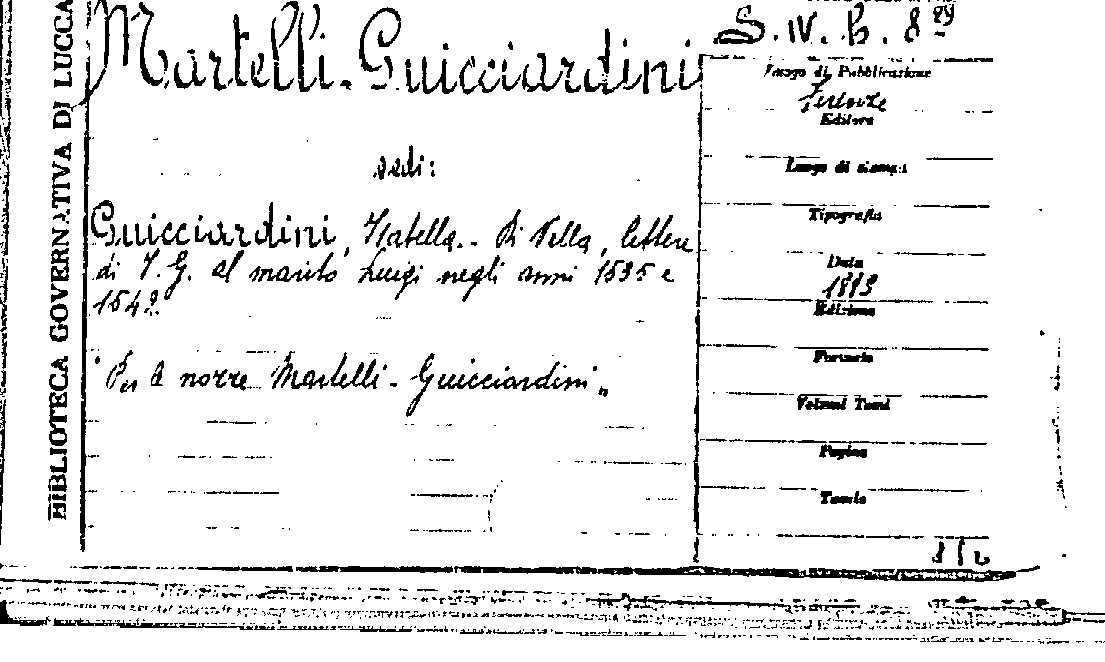 BIBLIOTECA GOVERNATIVA DI LUCCA
Martelli-Guicciardini
S. IV. b. 8
vedi:
Guicciardini, Isabella. - Di Villa, lettere
di I. G. al marito Luigi negli anni 1535 e
1542.
"Per le nozze Martelli - Guicciardini„
Luogo di Pubblicazione
Firenze
Editore
Luogo di stampa
Tipografia
Data
1883
Edizione
Formato
Volumi Tomi
Pagine
Tavole